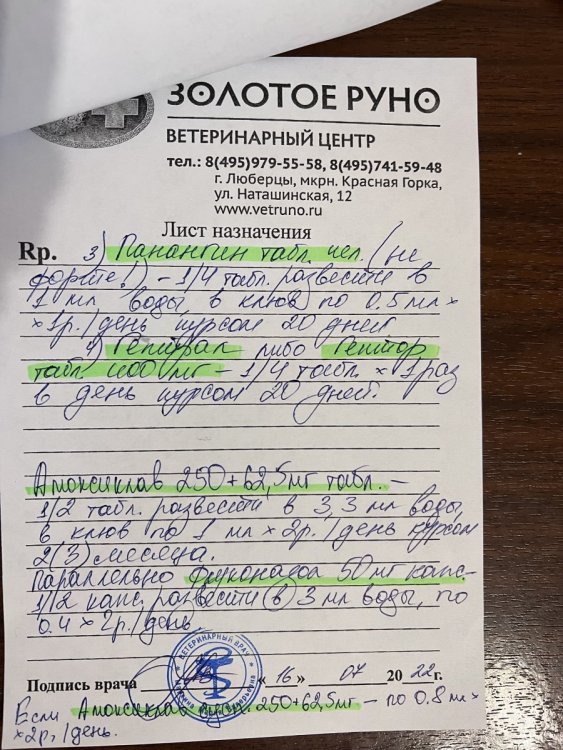 ЗОЛОТОЕ РУНО
ВЕТЕРИНАРНЫЙ ЦЕНТР
тел.: 8(495)979-55-58, 8(495)741-59-48
г. Люберцы, мкрн. Красная Горка,
ул. Наташинская, 12
www.vetruno.ru
Лист назначения
Rp. 3) Панангин табл. чел. (не
форте!) - 1/4 табл. развести в
1 мл воды, в клюв по 0.5 мл ×
× 1р./день курсом 20 дней
4) Гептрал либо Гептор
табл 400 мг - 1/4 табл × 1 раз
в день курсом 20 дней.
Амоксиклав 250+62,5мг табл. -
1/2 табл. развести в 3,3 мл воды,
в клюв по 1 мл × 2р./день курсом
2(3) месяца.
Параллельно Флуконазол 50 мг капс.
1/2 капс. развести в 3 мл воды, по
0.4 × 2р./день.
ВЕТЕРИНАРНЫЙ ВРАЧ
Подпись врача « 16 » 07 2022г.
Если Амоксиклав 250+62,5мг - по 0.8 мл ×
×2р./день.